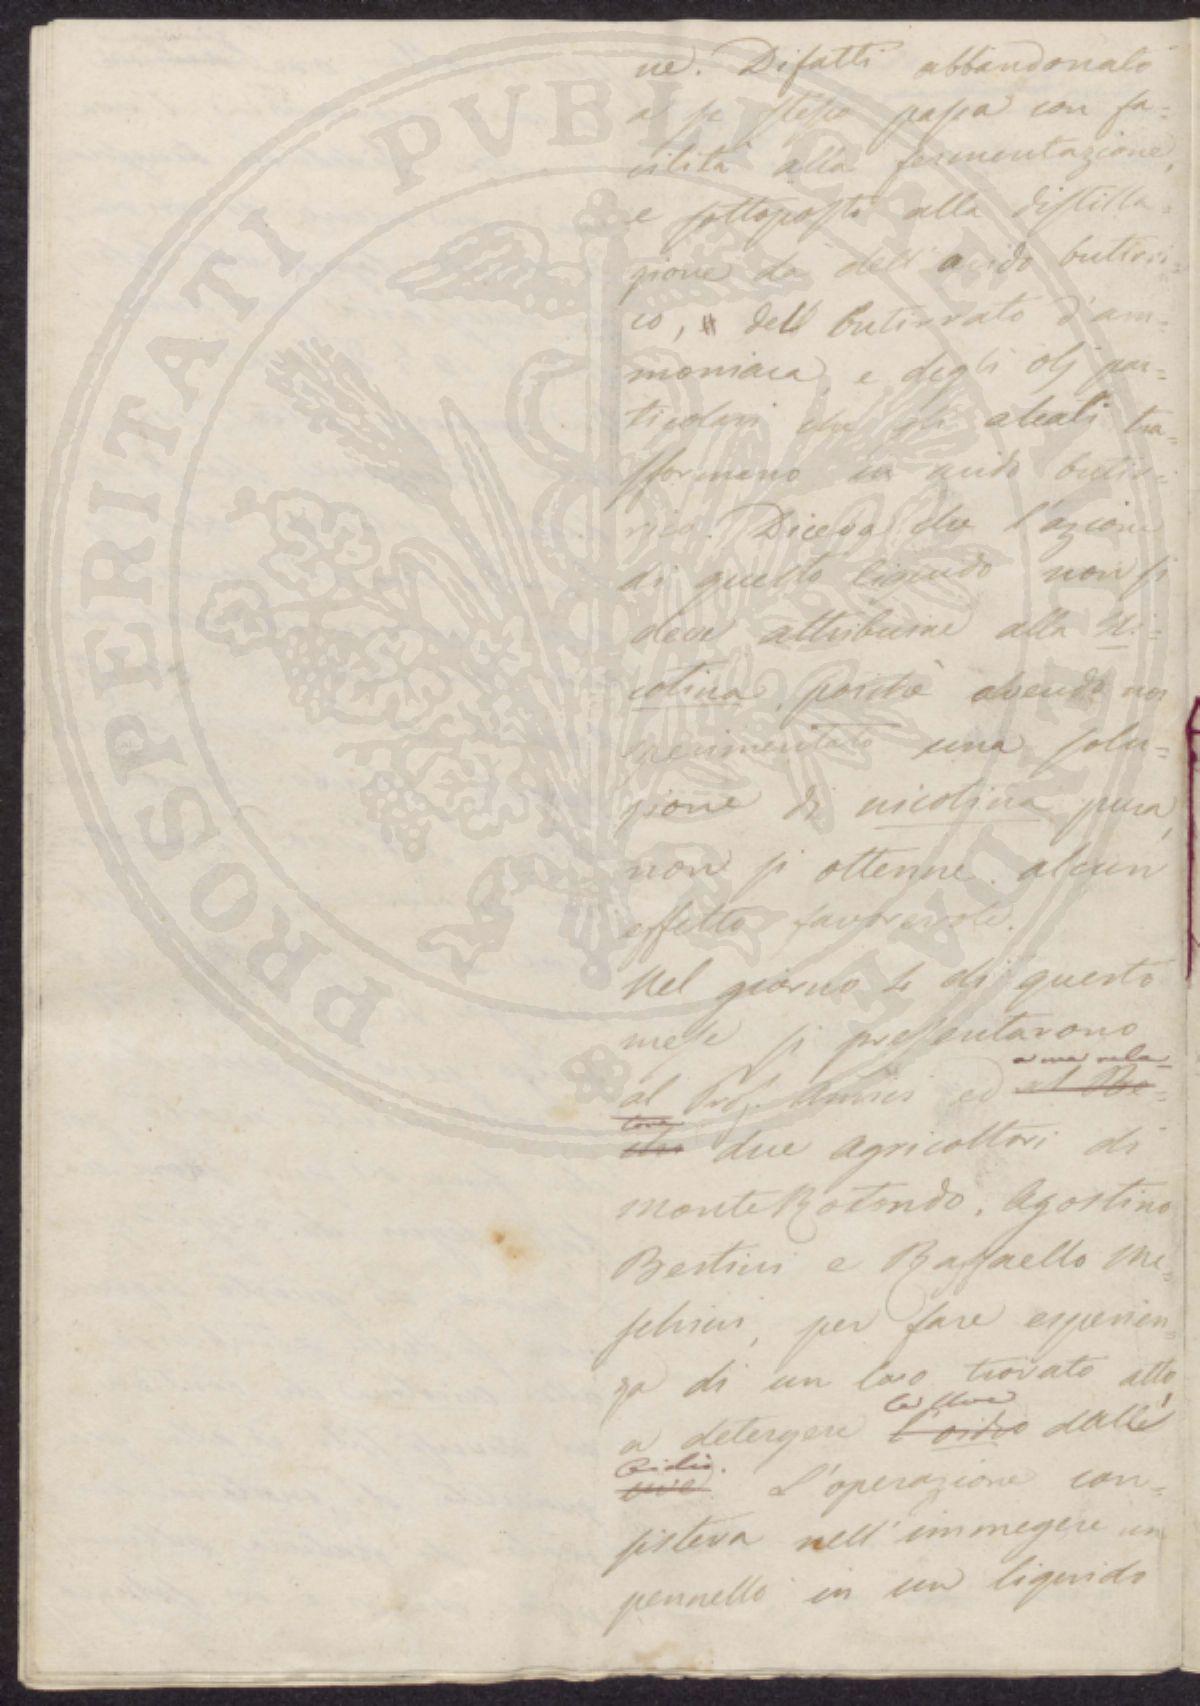 ne. Difatti abbandonato
a se stesso passa con fa=
cilità alla fermentazione,
e sottoposto alla distilla=
zione dà dell'acido butirri=
co, dell butirrato d'am=
moniaca, e degli olj par=
ticolari che gli alcali tra=
sformano in acido butir=
rico. Diceva che l'azione
di questo liquido non si
deve attribuire alla Ni=
cotina, poichè avendo noi
sperimentato una solu=
zione di nicotina pura,
non si ottenne alcun
effetto favorevole.
Nel giorno 4 di questo
mese si presentarono
a me rela=
al Prof. Amici ed al Be=
tore
due agricoltori di
Monte Rotondo, Agostino
Bertini e Raffaello Me=
schini, per fare esperien=
za di un loro trovato atto
a detergere l'oidio dalle
le uve
Oidio.
uve L'operazione con=
sisteva nell'immegere un
pennello in un liquido
PROSPERITATI PVBLICAE AVGENDAE